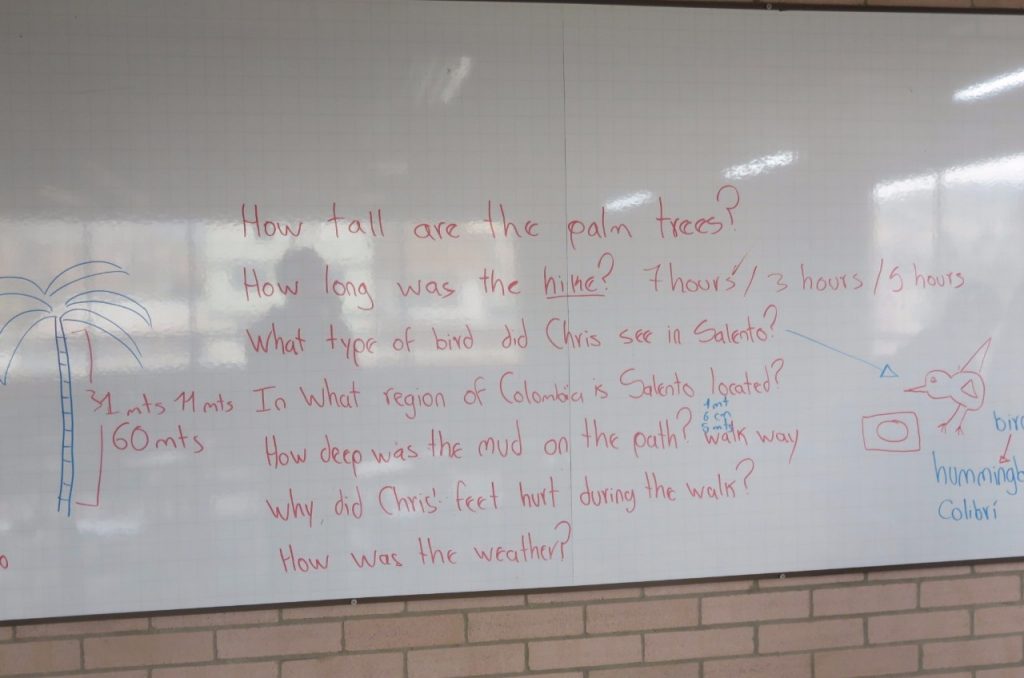 How tall are the palm trees?
How long was the hike? 7 hours / 3 hours / 5 hours
What type of bird did Chris see in Salento?
31 mts 11 mts
60 mts
In What region of Colombia is Salento located?
1 mt
6 cm
5 mts
How deep was the mud on the path? walk way
Why, did Chris' feet hurt during the walk?
How was the weather?
bird
hummingb
Colibrí